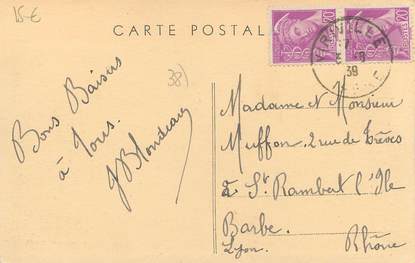 15€
CARTE POSTAL
38)
39
Bons Baisers
à Tous.
Madame et Monsieur
Muffon, 2 rue de Trèves
à St Rambert l'Ile
Barbe.
Lyon. Rhône